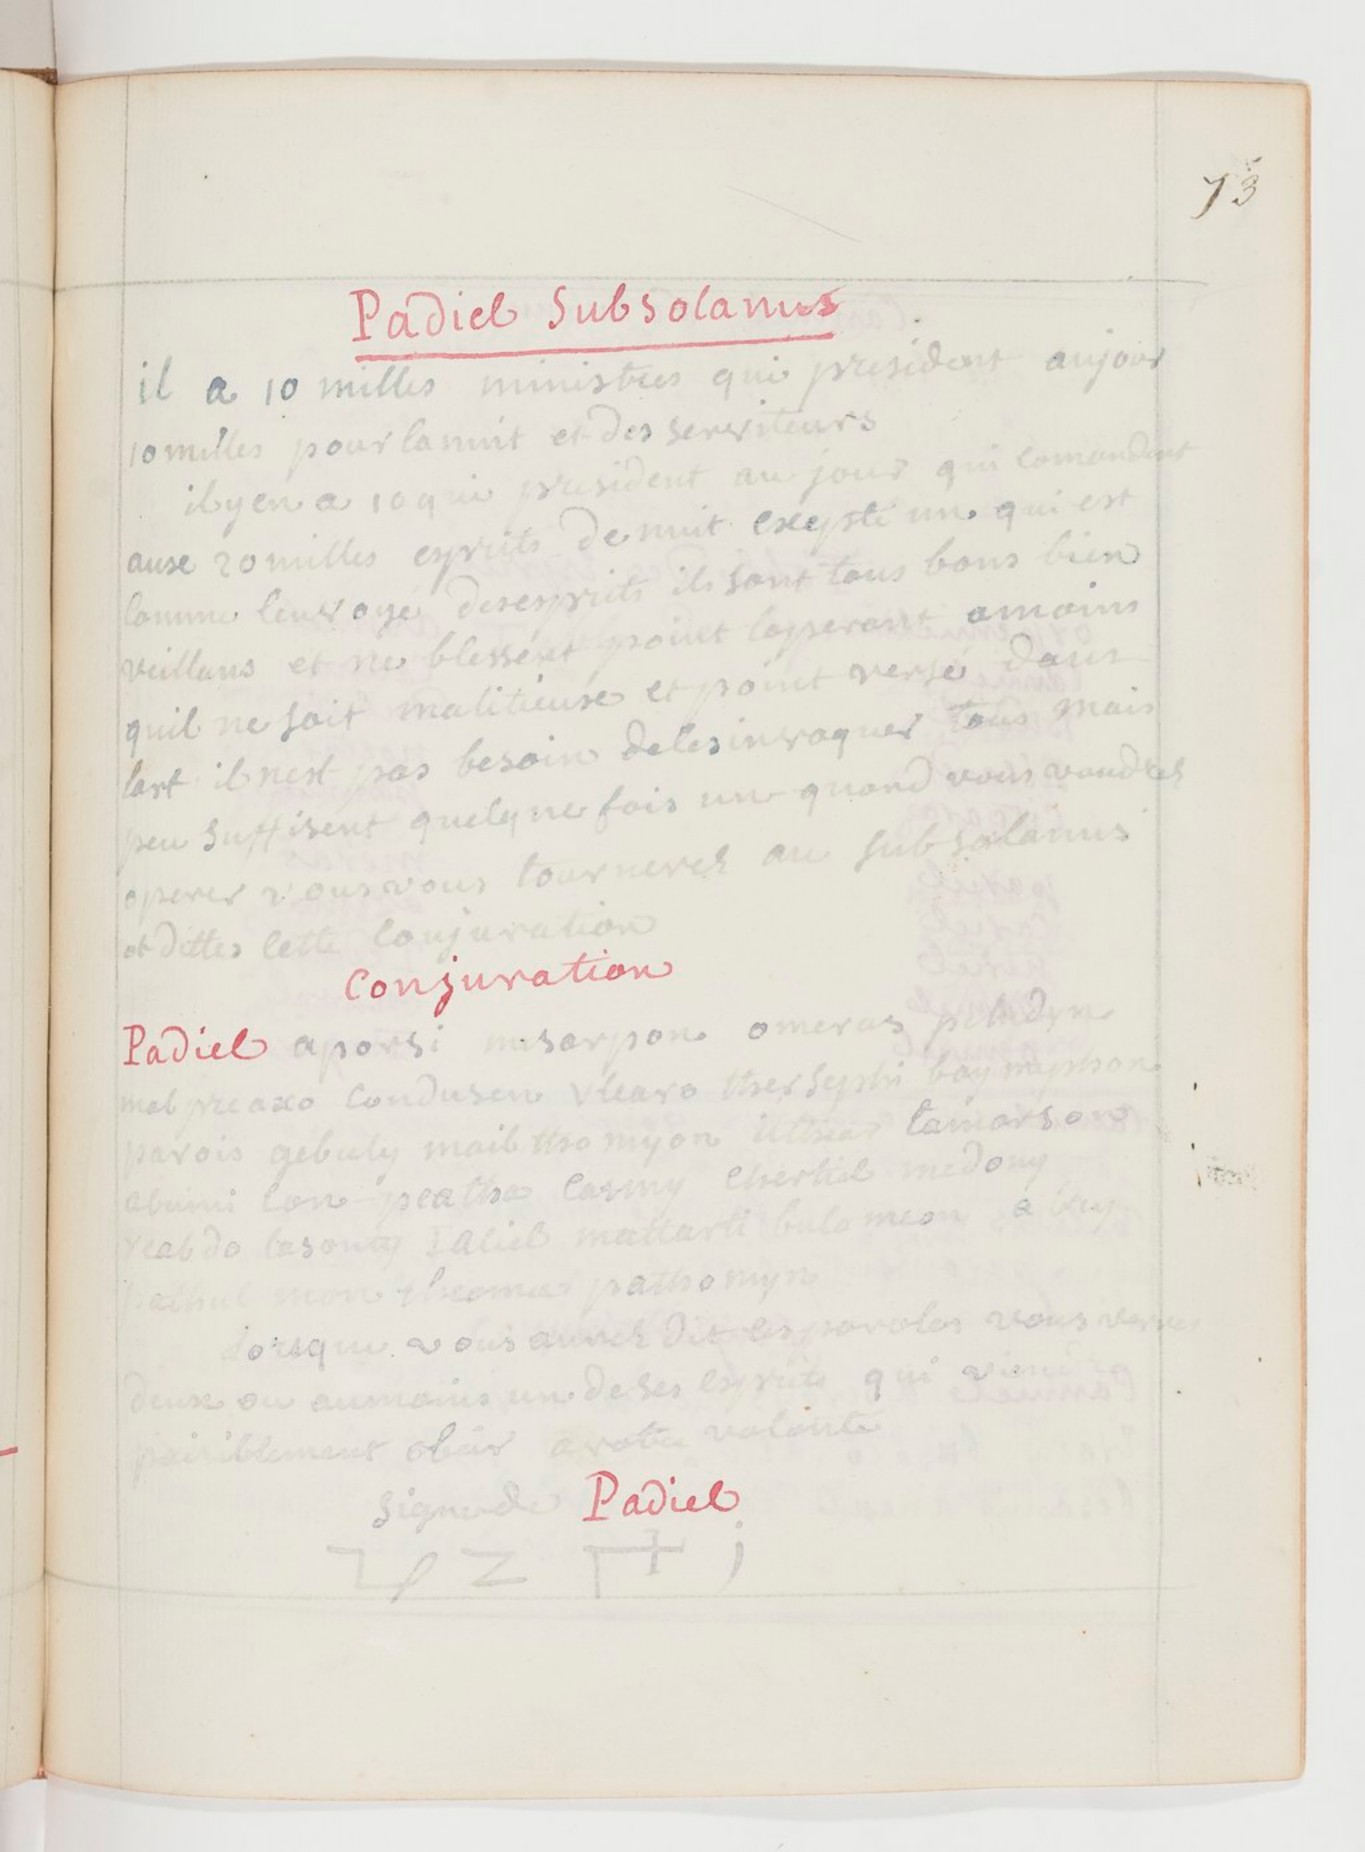 73
Padiel Subsolanus
il a 10 milles ministres qui president aujour
10 milles pour la nuit et des serviteurs
il y en a 10 qui president au jour qui comandent
ause 20 milles esprits de nuit exepté un qui est
comme lenvoyé des esprits ils sont tous bons bien
veillans et ne blessent point loperant amoins
quil ne soit malitieuse et point versé dans
lart il nest pas besoin de les invoquer tous mais
peu suffisent quelque fois un quand vous voudres
operer vous vous tournerez au subsolanus
et dittes cette conjuration
Conjuration
Padiel aporsi mesarpon omeras peludyn
malpreaxo condusen vlearo thersephi baymephon
parois gebuly mailthomyon ilthear tamarson
acrimi lon peatha casmy chertiel medony
reabdo lasonty iaciel mattarti bulomeon abry
pathulmon theoma pathomyn
lorsque vous aurez dit les paroles vous verrez
deux ou aumoins un de ses esprits qui
paisiblement obeir a votre volonté
Signe de Padiel